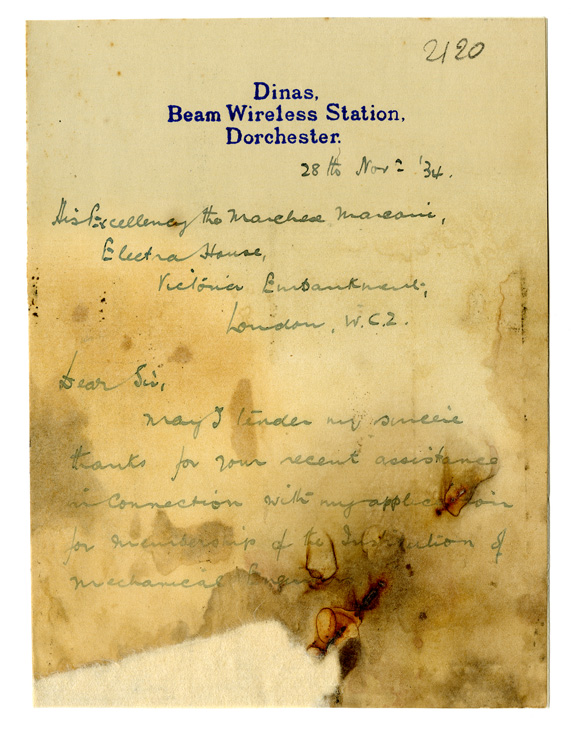 2120
Dinas,
Beam Wireless Station,
Dorchester.
28th Novr '34.
His Excellency the Marchese Marconi,
Electra House,
Victoria Embankment,
London, W.C.2.
Dear Sir,
May I tender my sincere
thanks for your recent assistance
in connection with my application
for membership of the Institution of
Mechanical